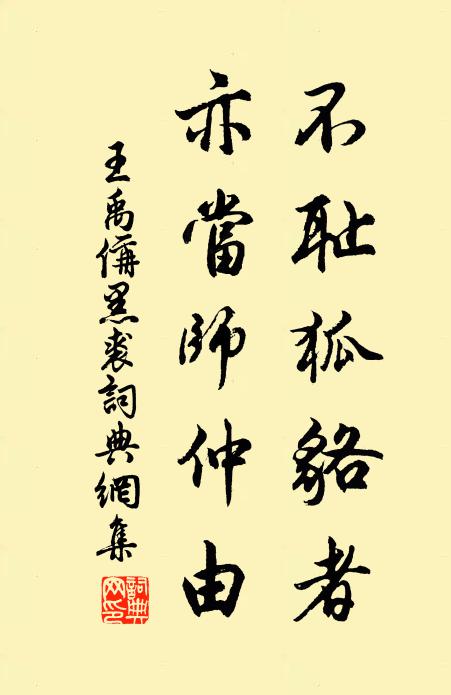 不耻狐貉者
亦當師仲由
王禹偁黑裘詞典網集
詞典網印